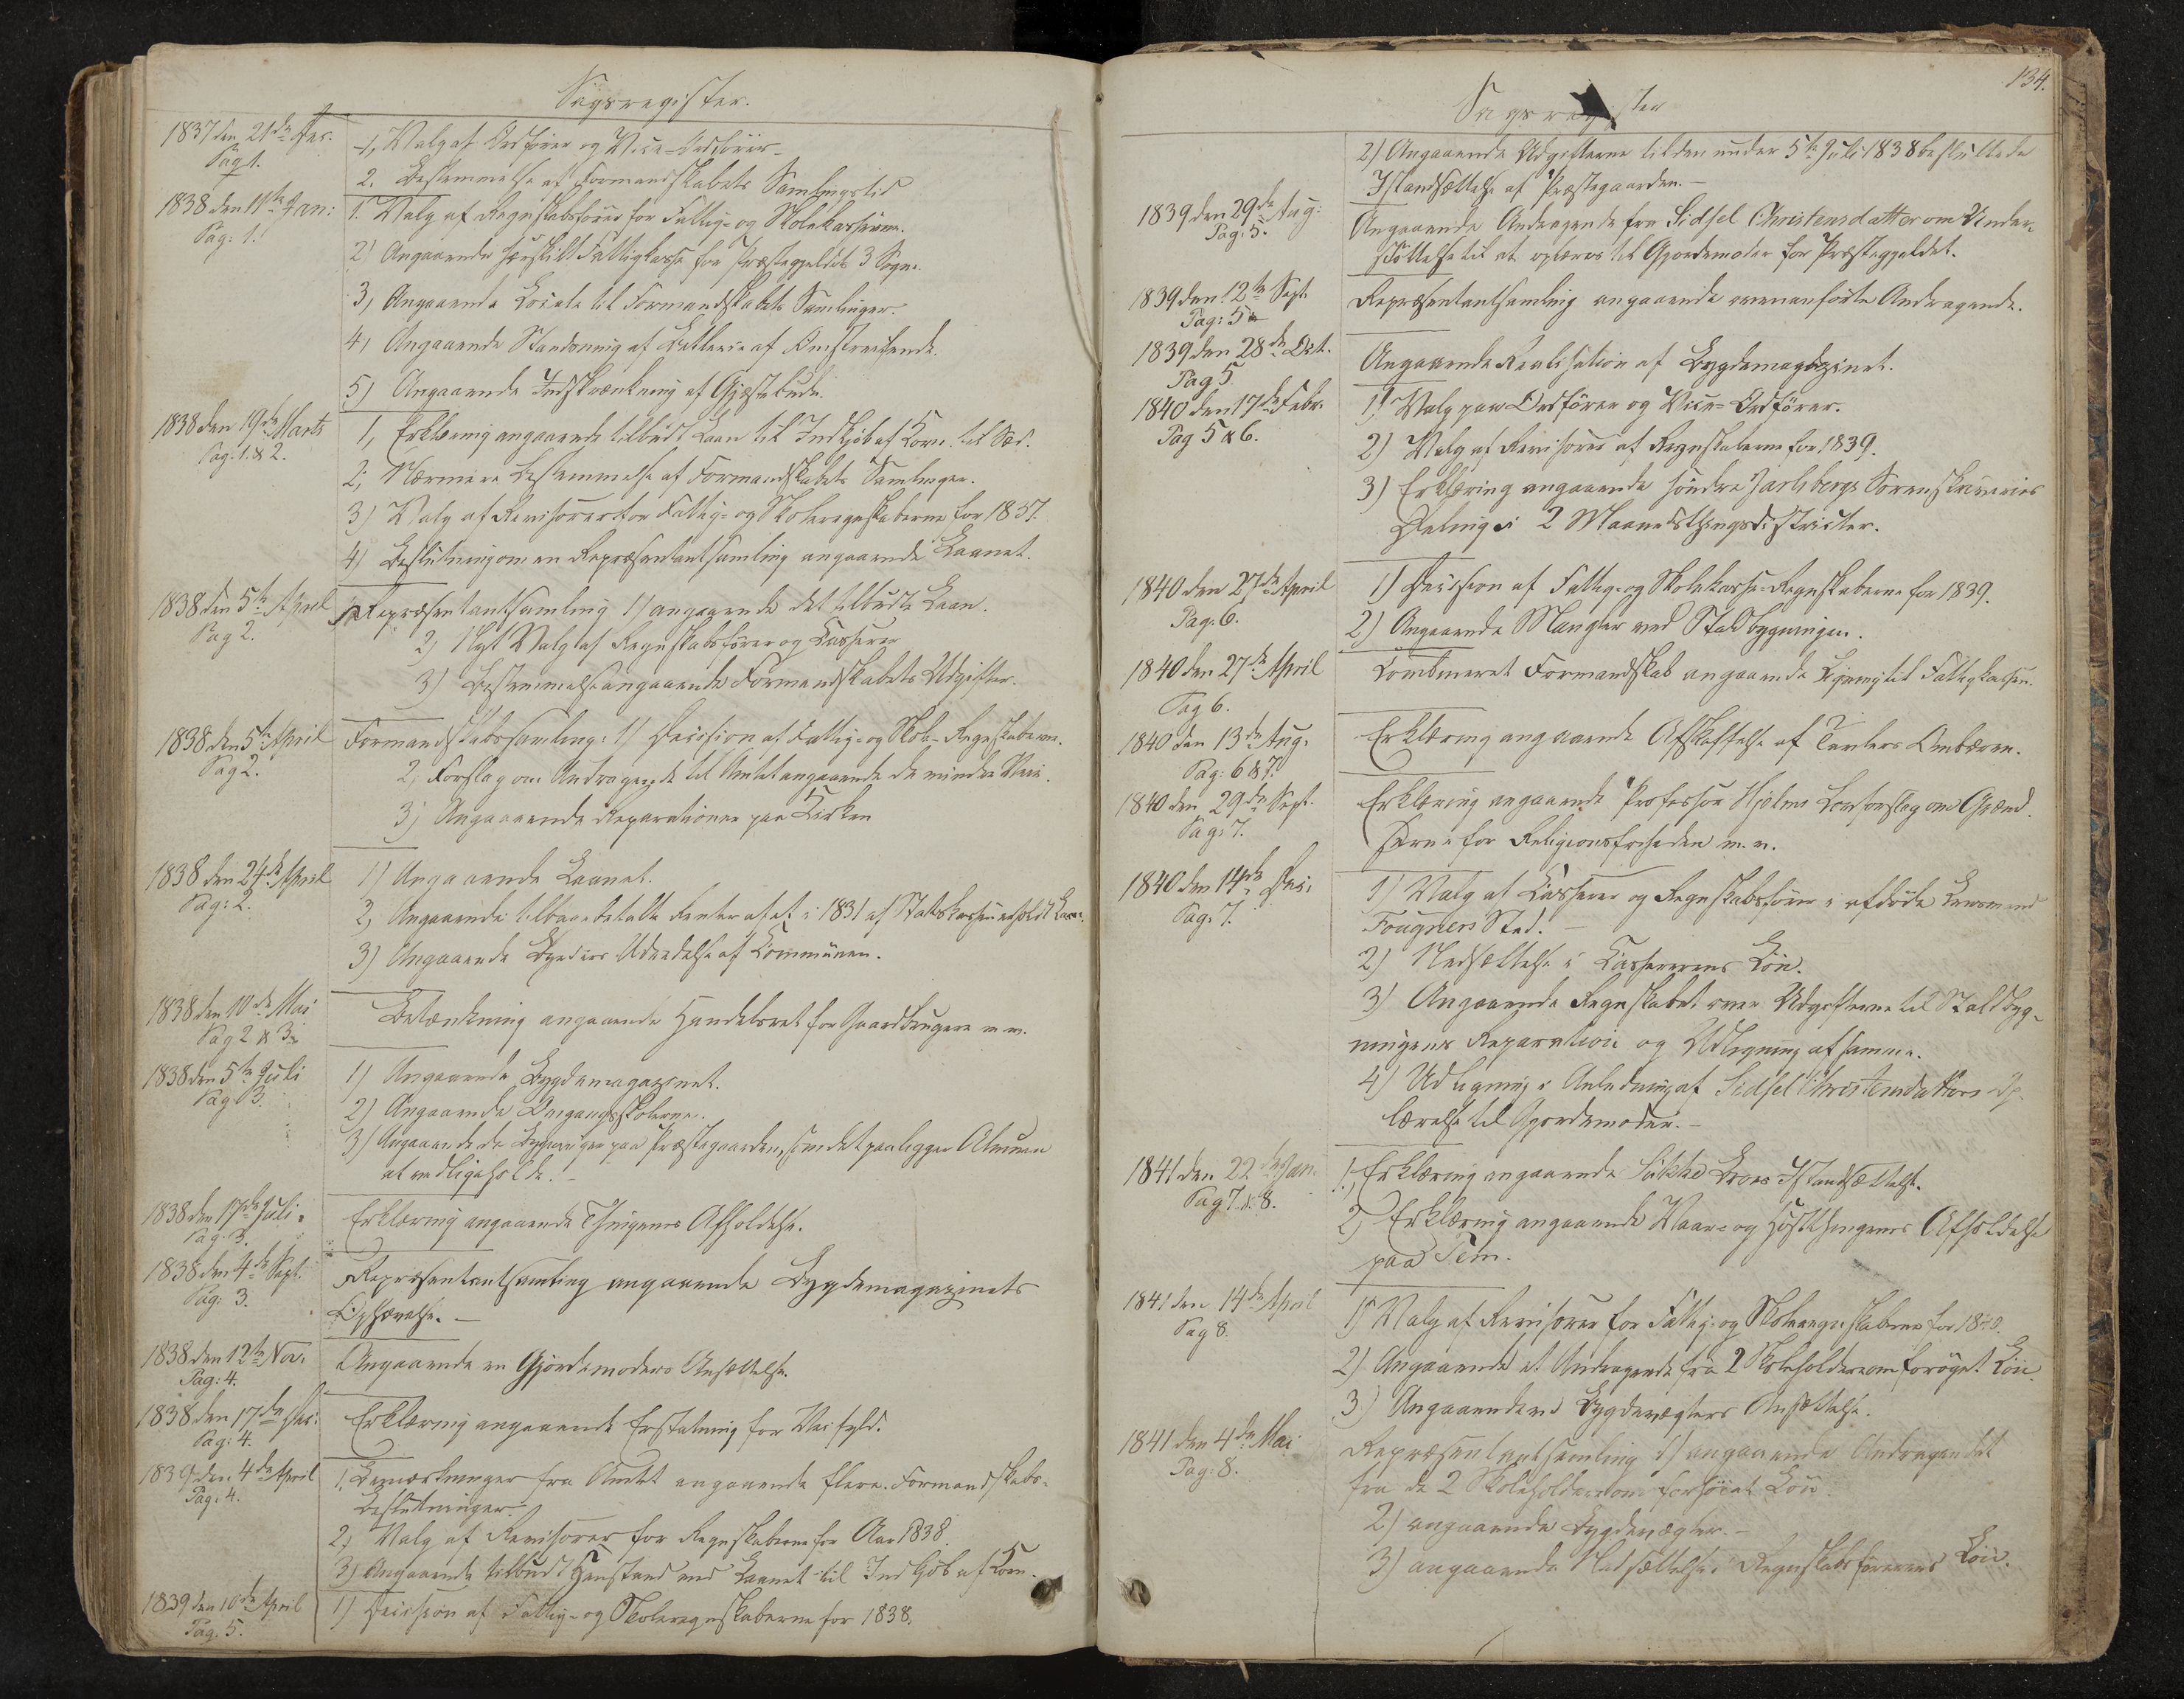 Sagsregister.
1837 den 21de Dec.
Pag 1.
1, Valg af Ordfører og Vice-Ordfører
2. Bestemmelse af Formandskabets Samlingstid
1838 den 11te Jan:
Pag: 1.
1. Valg af Regnskabsfører for Fattig- og Skolekasserne.
2) Angaaende særskilt Fattigkasse for Præstegjeldets 3 Sogne.
3, Angaaende Locale til Formandskabets Samlinger.
4, Angaaende Standsning af Betlerie af Omstreifende.
5) Angaaende Indskrænkning af Gjæstebude.
1838 den 19de Marts
Pag: 1. & 2.
1, Erklæring angaaende tilbudt Laan til Indkjöb af Korn til Sæd.
2, Nærmere Bestemmelse af Formandskabets Samlinger.
3) Valg af Revisorer for Fattig- og Skoleregnskaberne for 1837.
4) Beslutning om en Repræsentantsamling angaaende Laanet.
1838 den 5te April
Pag 2.
Repræsentantsamling 1) angaaende det tilbudte Laan.
2, Nyt Valg af Regnskabsfører og Casserer
3) Bestemmelse angaaende Formandskabets Udgifter.
1838 den 5te April
Pag 2.
Formandskabssamling: 1) Decision af Fattig- og Skole-Regnskaberne.
2, Forslag om Andragende til Amtet angaaende de mindre Veie.
3) Angaaende Reparationer paa Kirken
1838 den 24de April
Pag: 2.
1) Angaaende Laanet.
2, Angaaende tilbagebetalte Renter af et i 1831 af Statskassen erholdt Laan.
3) Angaaende Udredelse af Communen.
1838 den 10de Mai
Pag 2 & 3
Betænkning angaaende Handelsret for Gaardbrugere m. m.
1838 den 5te Juli
Pag 3.
1) Angaaende Bygdemagazinet.
2) Angaaende Omgangsskolerne.
3) Angaaende de Bygninger paa Præstegaarden, som det paaligger Almuen
at vedligeholde. -
1838 den 17de Juli.
Pag. 3.
Erklæring angaaende Thingenes Afholdelse.
1838 den 4de Sept.
Pag: 3.
Repræsentantsamling angaaende Bygdemagazinets
Ophævelse. -
1838 den 12te Nov.
Pag: 4.
Angaaende en Gjordemoders Ansættelse.
1838 den 17de Dec:
Pag: 4.
Erklæring angaaende Erstatning for Vei fyld.
1839 den 4de April
Pag: 4.
1, Bemærkninger fra Amtet angaaende flere Formandskabs-
Beslutninger.
2, Valg af Revisorer for Regnskaberne for Aar 1838.
3) Angaaende tilbudt Henstand med Laanet til Indkjöb af Korn.
1839 den 10de April
Pag. 5.
1) Decision af Fattig- og Skoleregnskaberne for 1838.
134.
Sagsregister
2) Angaaende Udgifterne til den under 5te Juli 1838 besluttede
Istandsættelse af Præstegaarden. -
1839 den 29de Aug:
Pag: 5.
Angaaende Andragende fra Sidsel Christensdatter om Under-
støttelse til at oplæres til Gjordemoder for Præstegjeldet.
1839 den 12te Sept.
Pag: 5
Repræsentantsamling angaaende ovenanførte Andragende.
1839 den 28de Oct.
Pag 5
Angaaende Realisation af Bygdemagazinet.
1840 den 17de Febr.
Pag 5 & 6.
1) Valg paa Ordfører og Vice-Ordfører.
2) Valg af Revisorer af Regnskaberne for 1839.
3) Erklæring angaaende søndre Jarlsbergs Sorenskriveries
Deling i 2 Maanedsthingsdistricter.
1840 den 27de April
Pag. 6.
1) Decision af Fattig- og Skolekasse-Regnskaberne for 1839.
2) Angaaende Mangler ved Staldbygningen.
1840 den 27de April
Pag 6.
Combineret Formandskab angaaende til Fattigkassen.
1840 den 13de Aug.
Pag: 6 & 7.
Erklæring angaaende Afskaffelse af Ombæren.
1840 den 29de Sept.
Pag: 7.
Erklæring angaaende Professor Hjelms Lovforslag om Grænd-
serne for Religionsfriheden m. v.
1840 den 14de Dec.
Pag. 7.
1) Valg af Casserer og Regnskabsfører i afdøde Lensmand
Fougners Sted. -
2) Nedsættelse i Kassererens Løn.
3) Angaaende Regnskabet over Udgifterne til Staldbyg-
ningens Reparation og Udligning af samme.
4) Udligning i Anledning af Sidsel Christensdatters Op-
lærelse til Gjordemoder. -
1841 den 22de Jan.
Pag 7 & 8.
1, Erklæring angaaende Broes Istandsættelse.
2) Erklæring angaaende Vaar- og Høstthingenes Afholdelse
paa Sem.
1841 den 14de April
Pag 8.
1) Valg af Revisorer for Fattig- og Skoleregnskaberne for 1840.
2) Angaaende et Andragende fra 2 Skoleholdere om forøget Løn
3) Angaaende en Bygdevægters Ansættelse.
1841 den 4de Mai
Pag: 8.
Repræsentantsamling 1) angaaende Andragendet
fra de 2 Skoleholdere om forhöiet Lön
2) angaaende Bygdevægter. -
3) angaaende Nedsættelse i Regnskabsførerens Lön.